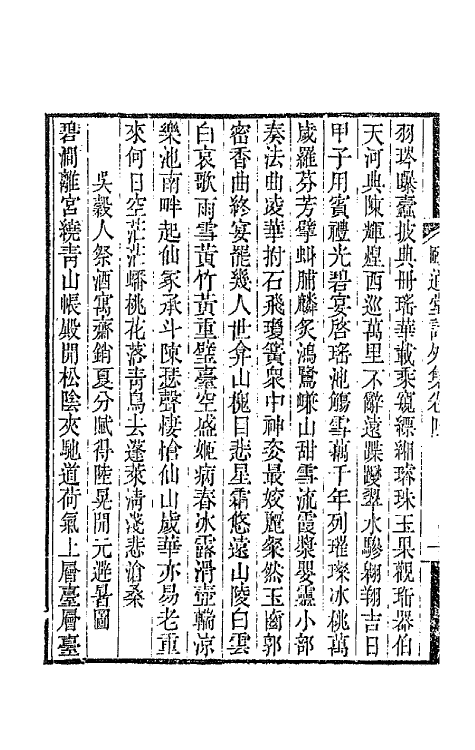 頤道堂詩外集卷四
羽琌曝蠹披典冊瑤華載乘窺縹緗璿珠玉果觀珩器伯
天河典陳輝煌西巡萬里不辭遠蹀躞翠水驂翱翔吉日
甲子用賓禮光碧宴啓瑤池觴雪藕千年列璀璨冰桃萬
歲羅芬芳擘蚪脯麟炙鴻鷺嵰山甜雪流霞漿嬰靈小部
奏法曲凌華拊石飛瓊簧衆中神姿最姣麗粲然玉齒郭
密香曲終宴罷幾人世弇山槐日悲星霜悠遠山陵白雲
白哀歌雨雪黃竹黃重璧臺空盛姬病春冰露滑壺觴涼
樂池南畔起仙冢承斗陳瑟聲悽愴仙山歲華亦易老重
來何日空茫茫蟠桃花落靑鳥去蓬萊淸淺悲滄桑
吳穀人祭酒寓齋銷夏分賦得陸晃開元避暑圖
碧澗離宮繞靑山帳殿開松陰夾馳道荷氣上層臺層臺